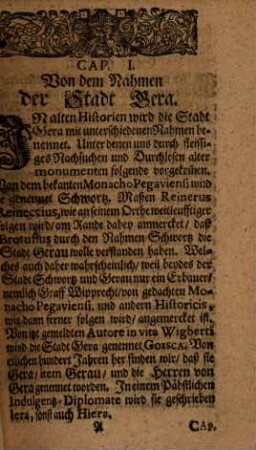 CAP. I.
Von dem Nahmen
der Stadt Gera.
IN alten Historien wird die Stadt
Gera mit unterschiedenen Nahmen be-
nennet. Unter denen uns durch fleissi-
ges Nachsuchen und Durchlesen alter
monumenten folgende vorgekommen.
Von dem bekanten Monacho Pegaviensi wird
sie genennet Schwortz. Maßen Reinerus
Reineccius, wie an seinem Orthe weitleufftiger
folgen wird/ am Rande dabey anmercket/ daß
Brotuffius durch den Nahmen Schwortz die
Stadt Gerau wolle verstanden haben. Wel-
ches auch daher wahrscheinlich/ weil beydes der
Stadt Schwortz und Gerau nur ein Erbauer
nemlich Graff Wipprecht/ von gedachten Mo-
nacho Pegaviensi, und andern Historicis,
wie dann ferner folgen wird/ angemercket ist.
Von itzt gemeldten Autore in vita Wigberti
wird die Stadt Gera genennet GOISCA. Von
etlichen hundert Jahren her finden wir/ daß sie
Gera/ item Gerau/ und die Herren von
Gera genennet worden. In einem Päbstlichen
Indulgentz-Diplomate wird sie geschrieben
Iera, sonst auch Hiero.
A Cap.